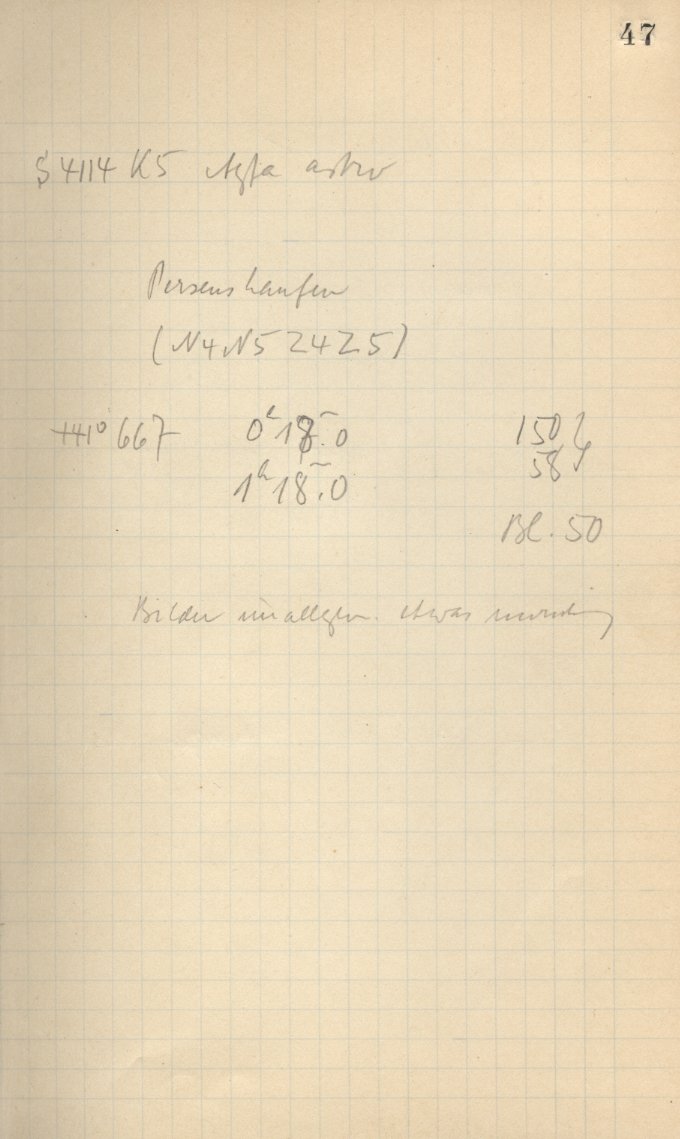 47
S 4114 K5 Agfa astro
Perseushaufen
(N4N5 Z4Z5)
+41° 667 0ʰ 18ᵐ.0 150
1ʰ 18ᵐ.0 58
Bl. 50
Bilder im allgem. etwas unruhig